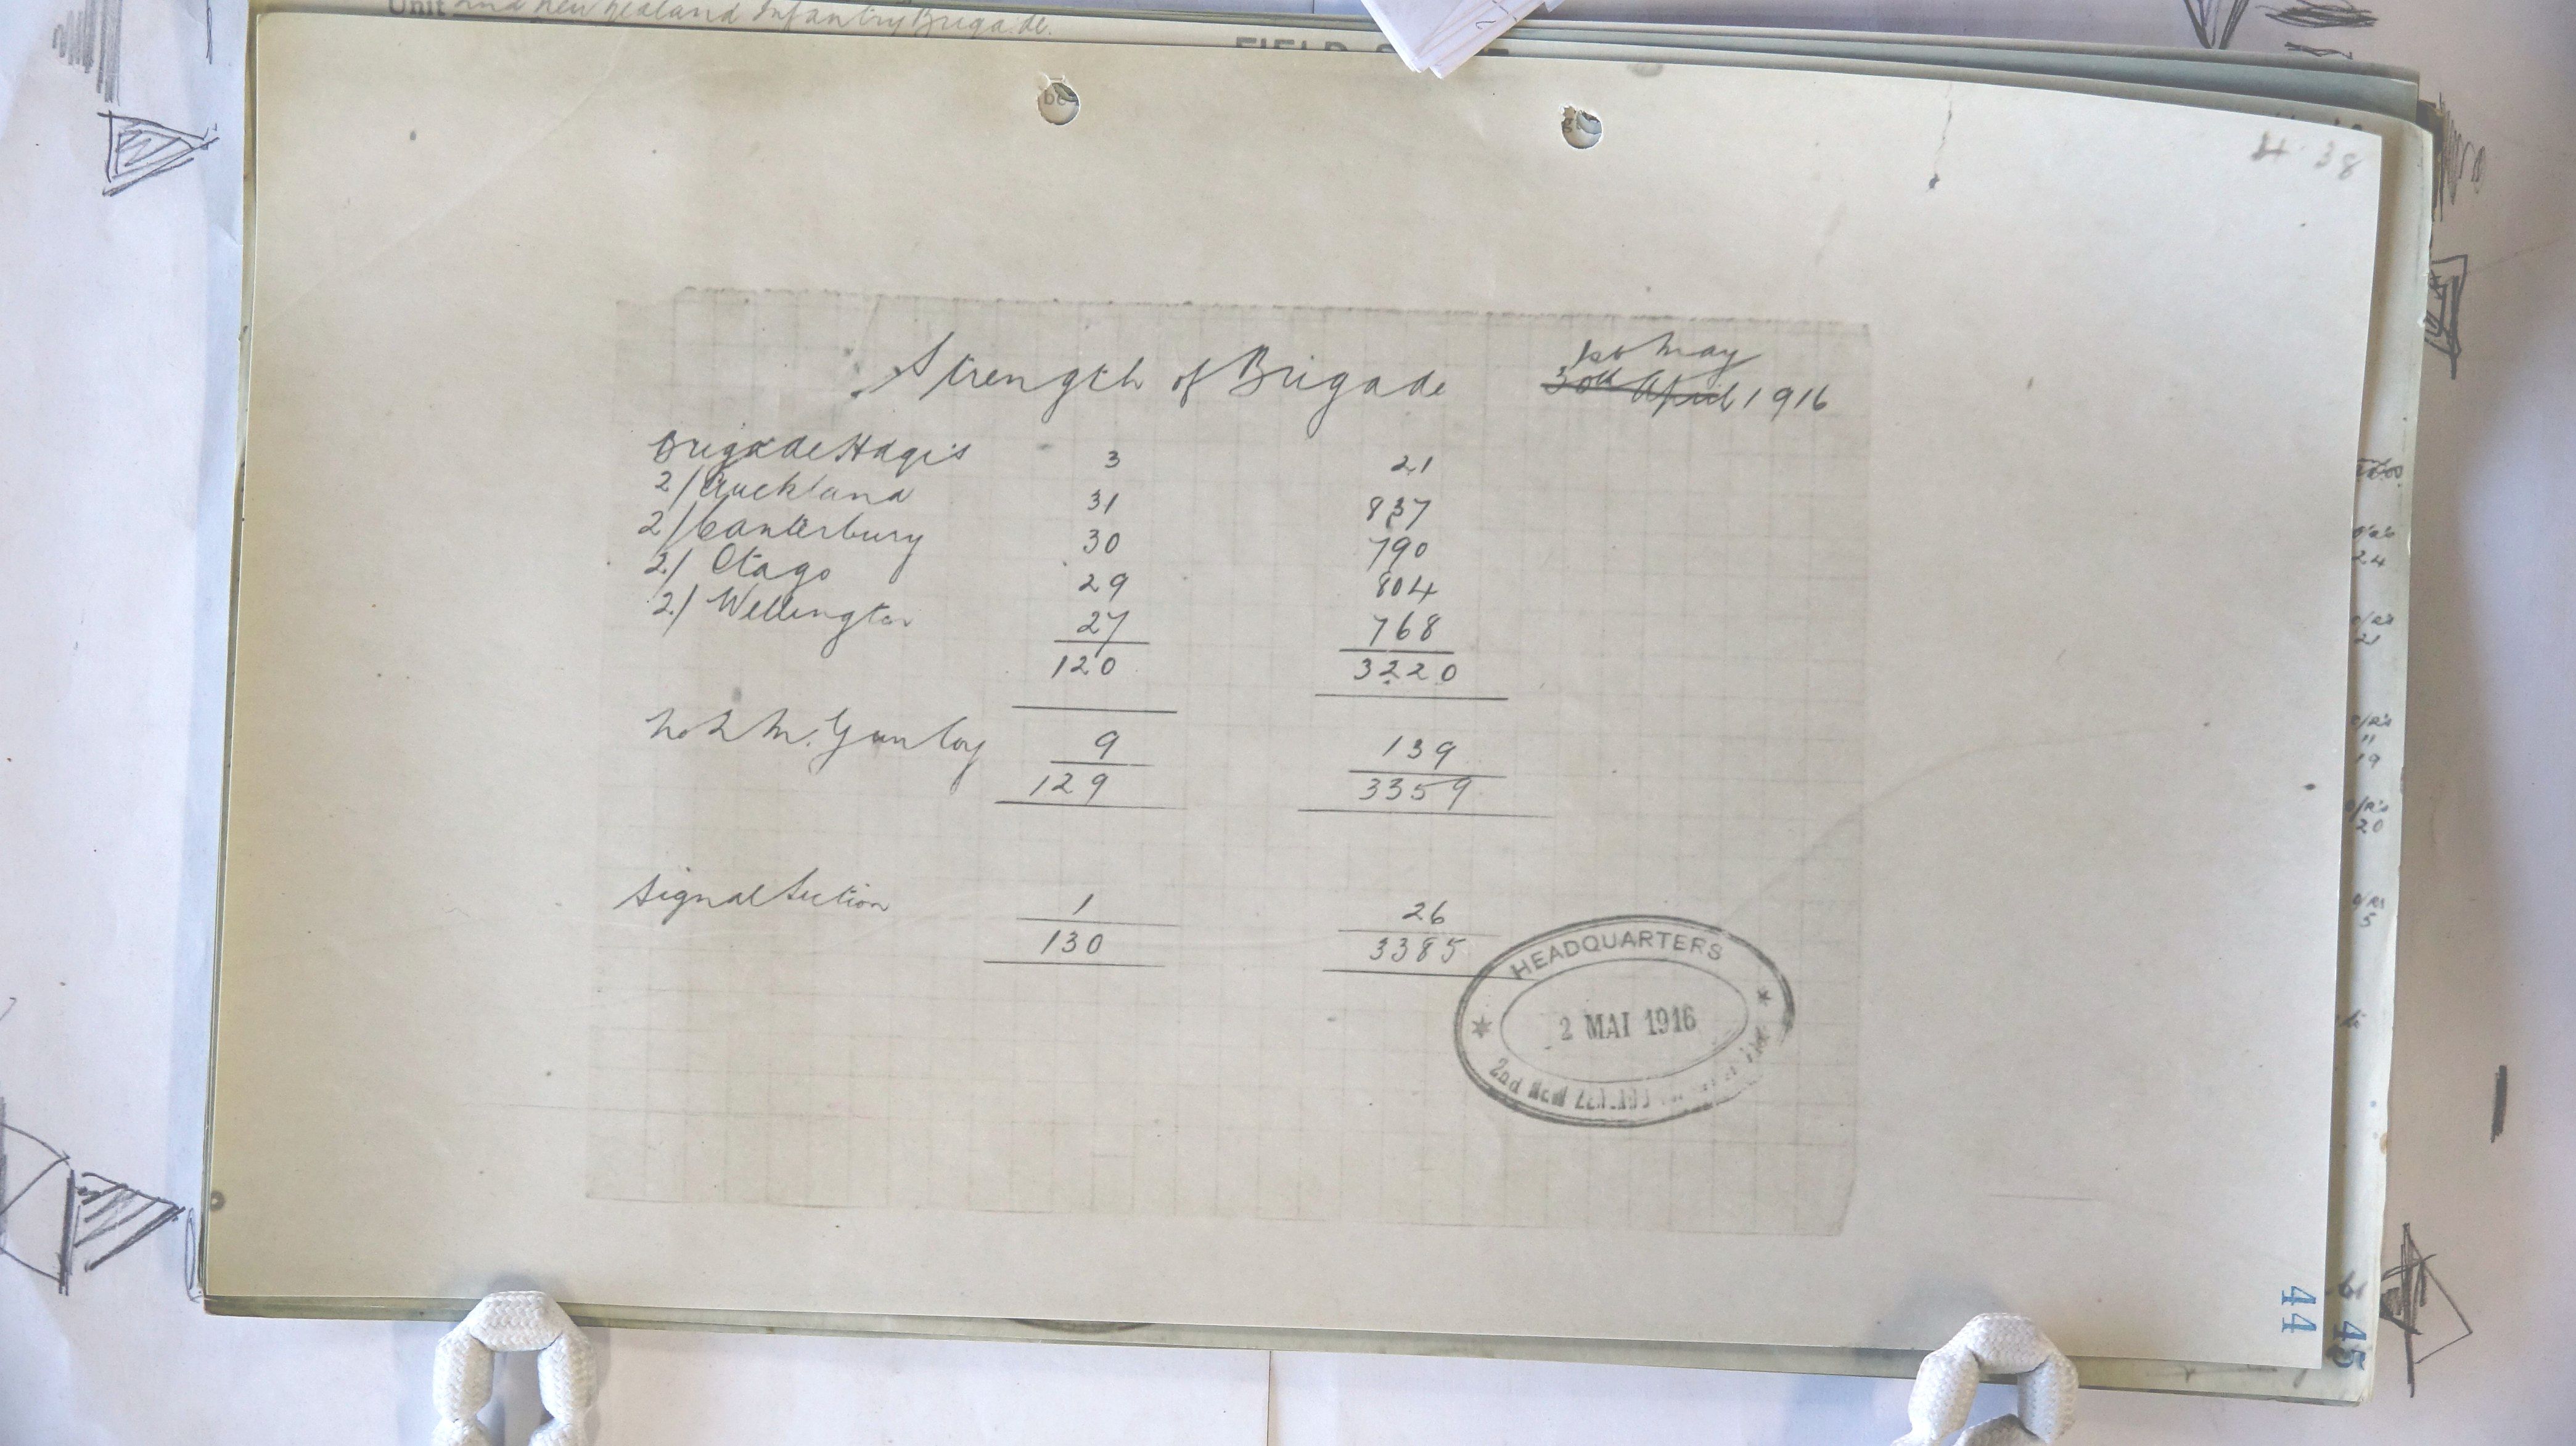 Unit 2nd New Zealand Infantry Brigade.
38
Strength of Brigade
1st May
30th April 1916
Brigade Hdqrs 3 21
2/ Auckland 31 837
2/ Canterbury 30 790
2/ Otago 29 804
2/ Wellington 27 768
120 3220
No 2 M. Gun Coy 9 139
129 3359
Signal Section 1 26
130 3385
HEADQUARTERS
2 MAI 1916
2nd New
44
45
O/R's
24
O/R's
21
O/R's
11
19
O/R's
20
O/Rs
5